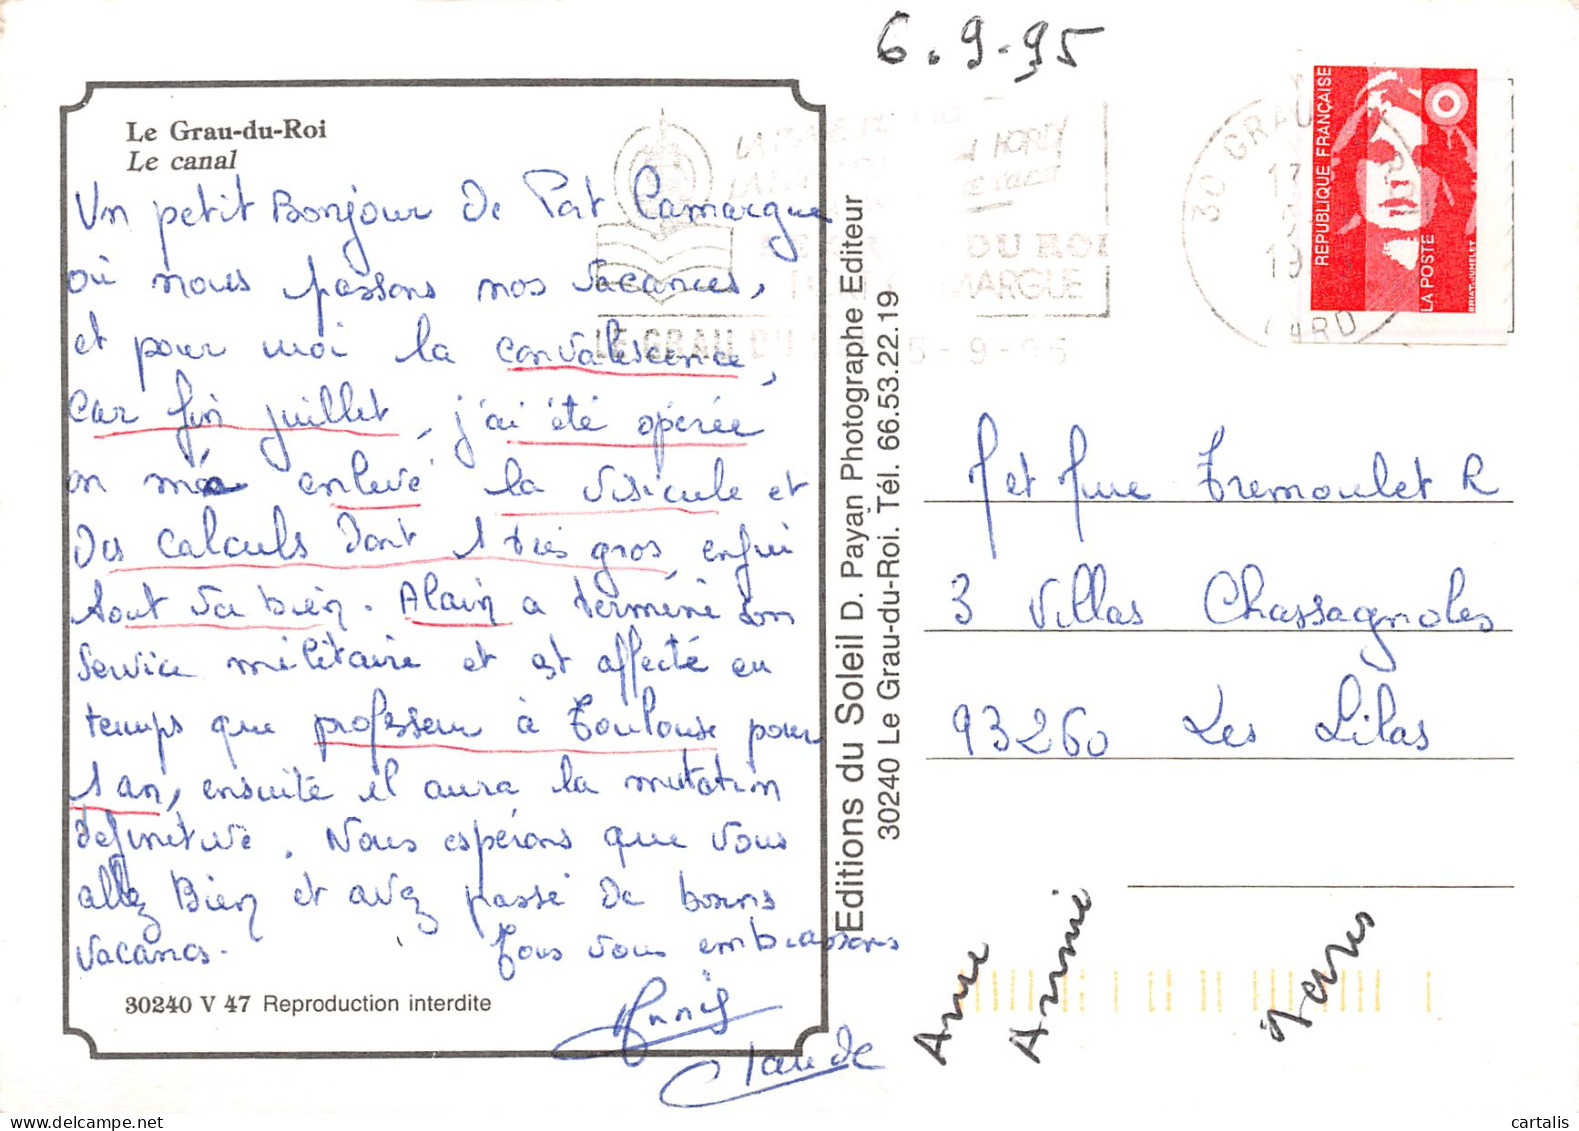 6.9.95
Le Grau-du-Roi
Le canal
Un petit Bonjour de Port Camargue
où nous passons nos vacances,
et pour moi la convalescence,
Car fin juillet, j'ai été opérée
on m'a enlevé la visicule et
des calculs dont 1 très gros, enfin
tout va bien. Alain a terminé son
service militaire et est affecté en
temps que professeur à Toulouse pour
1 an, ensuite il aura la mutation
définitive. Nous espérons que vous
allez Bien et avez passé de bonnes
vacances. Tous vous embrassons
Annie
Claude
30240 V 47 Reproduction interdite
Editions du Soleil D. Payan Photographe Editeur
30240 Le Grau-du-Roi. Tél. 66.53.22.19
LE GRAU DU
DU ROI
5-9-95
30 GRAU
GARD
REPUBLIQUE FRANÇAISE
LA POSTE
BRIAT-JUMELET
M et Mme Tremoulet R
3 Villas Chassagnoles
93260 Les Lilas
Annie
cartalis